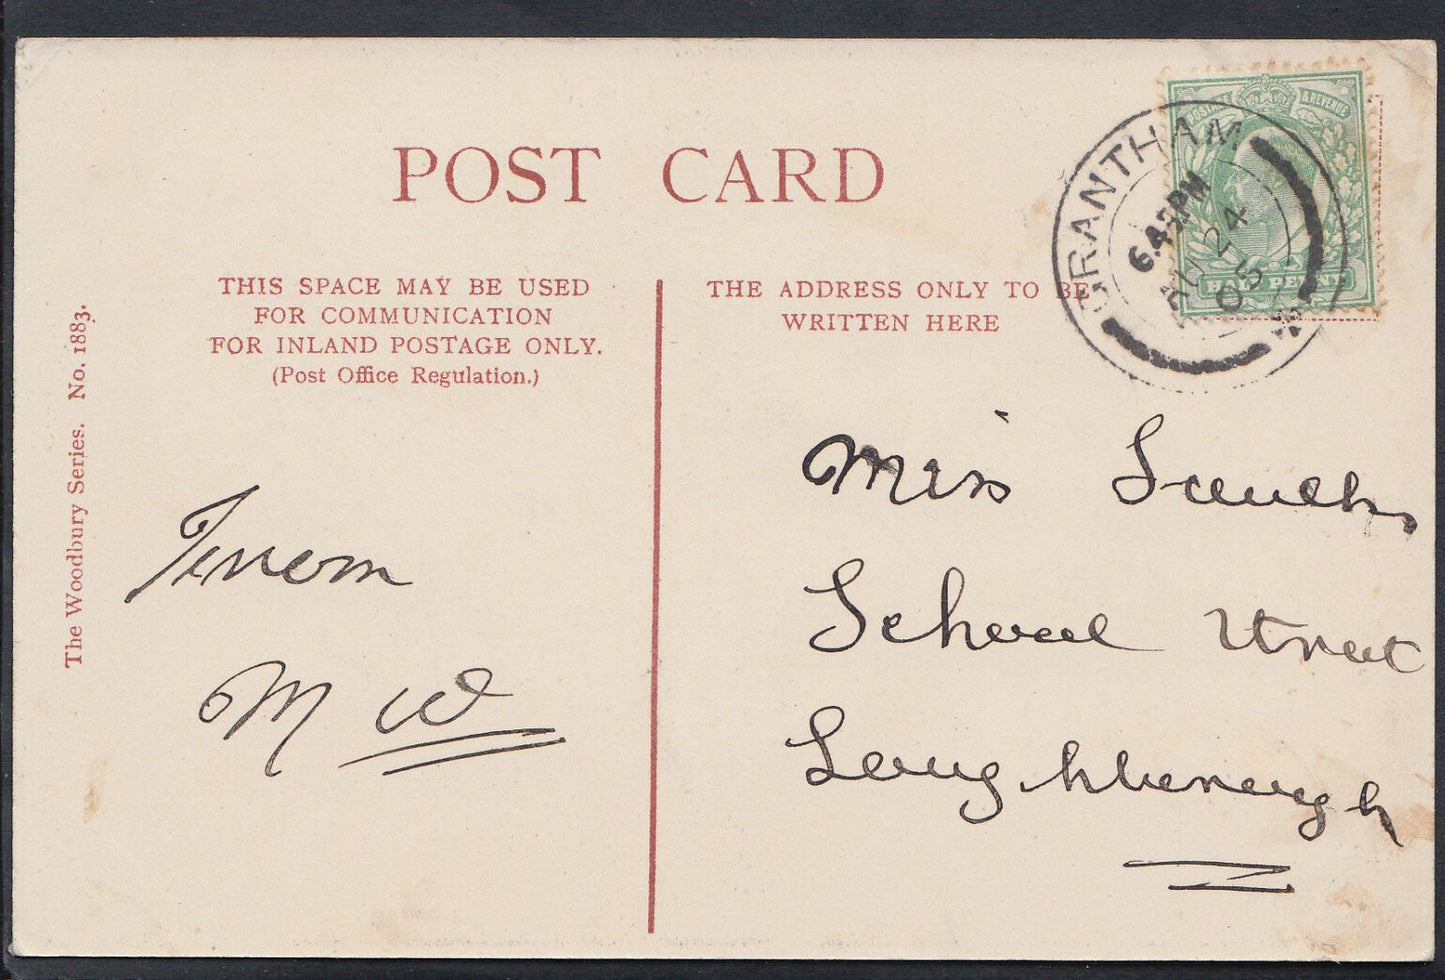 POST CARD
THIS SPACE MAY BE USED
FOR COMMUNICATION
FOR INLAND POSTAGE ONLY.
(Post Office Regulation.)
THE ADDRESS ONLY TO BE
WRITTEN HERE
The Woodbury Series. No. 1883.
POSTAGE & REVENUE
HALF PENNY
GRANTHAM
6.45PM
AU 24
05
From
M W
Miss
School Street
Loughborough